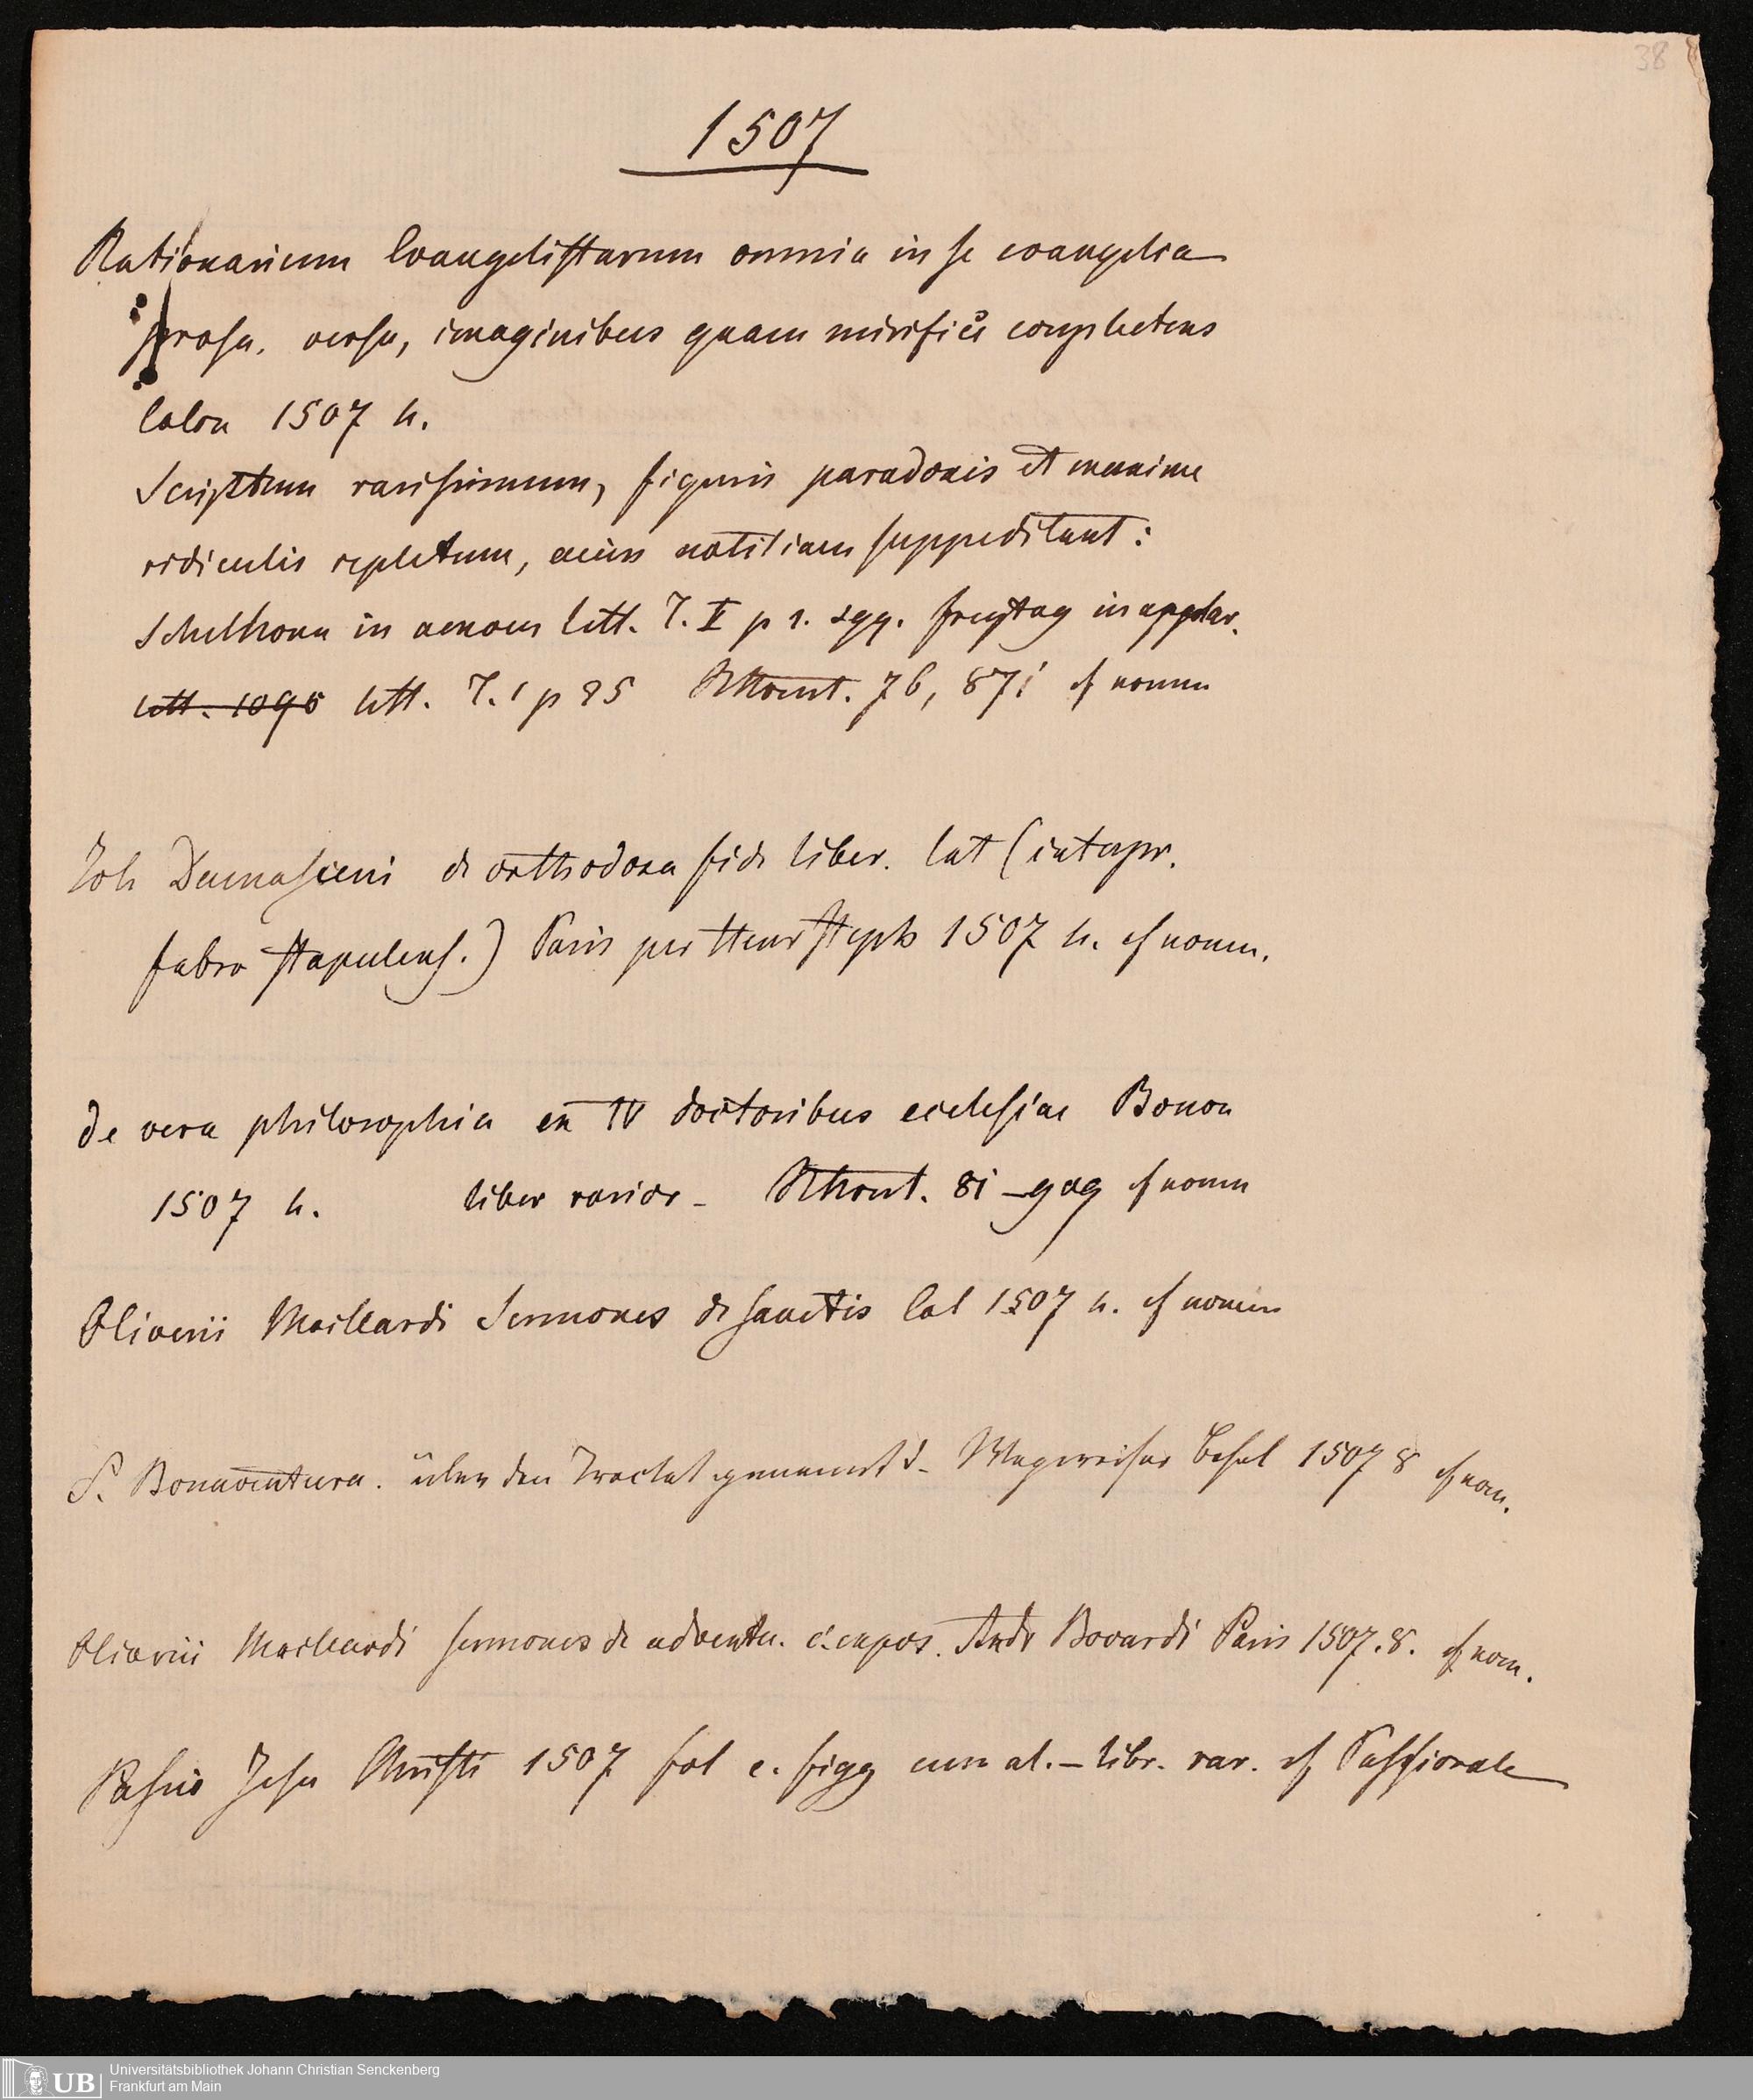 38
1507
Rationarium Evangelistarum omnia in se evangelia
prosa, versu, imaginibus quam mirifice complectens
1507 4.
Scriptum rarissimum, figuris paradoxis et maxime
ridiculis repletum, cuius notitiam suppeditant:
Schelhorn in amoen litt. T. II p 1. sqq. freytag in appar.
litt. T. 1 p 85 76, 871 cf nomen
Joh Damasceni de orthodoxa fide liber. lat (interpr.
fabro stapulens.) Paris per Henr Steph 1507 4. cf nomen.
De vera philosophia ex IV doctoribus ecclesiae Bonon
1507 4. liber rarior – 81 – 909 cf nomen
Oliverii Maillardi Sermones de sanctis 1507 4. cf nomen
S. Bonaventura. über den Tractat genannt d. Wegweiser Basel 1507 8 cf nom.
Oliverii Maillardi sermones de adventu. Paris 1507. 8. cf nom.
Passio Jesu Christi 1507 fol c. figg cum al. – libr. rar. cf Passionale
Universitätsbibliothek Johann Christian Senckenberg
Frankfurt am Main
UB